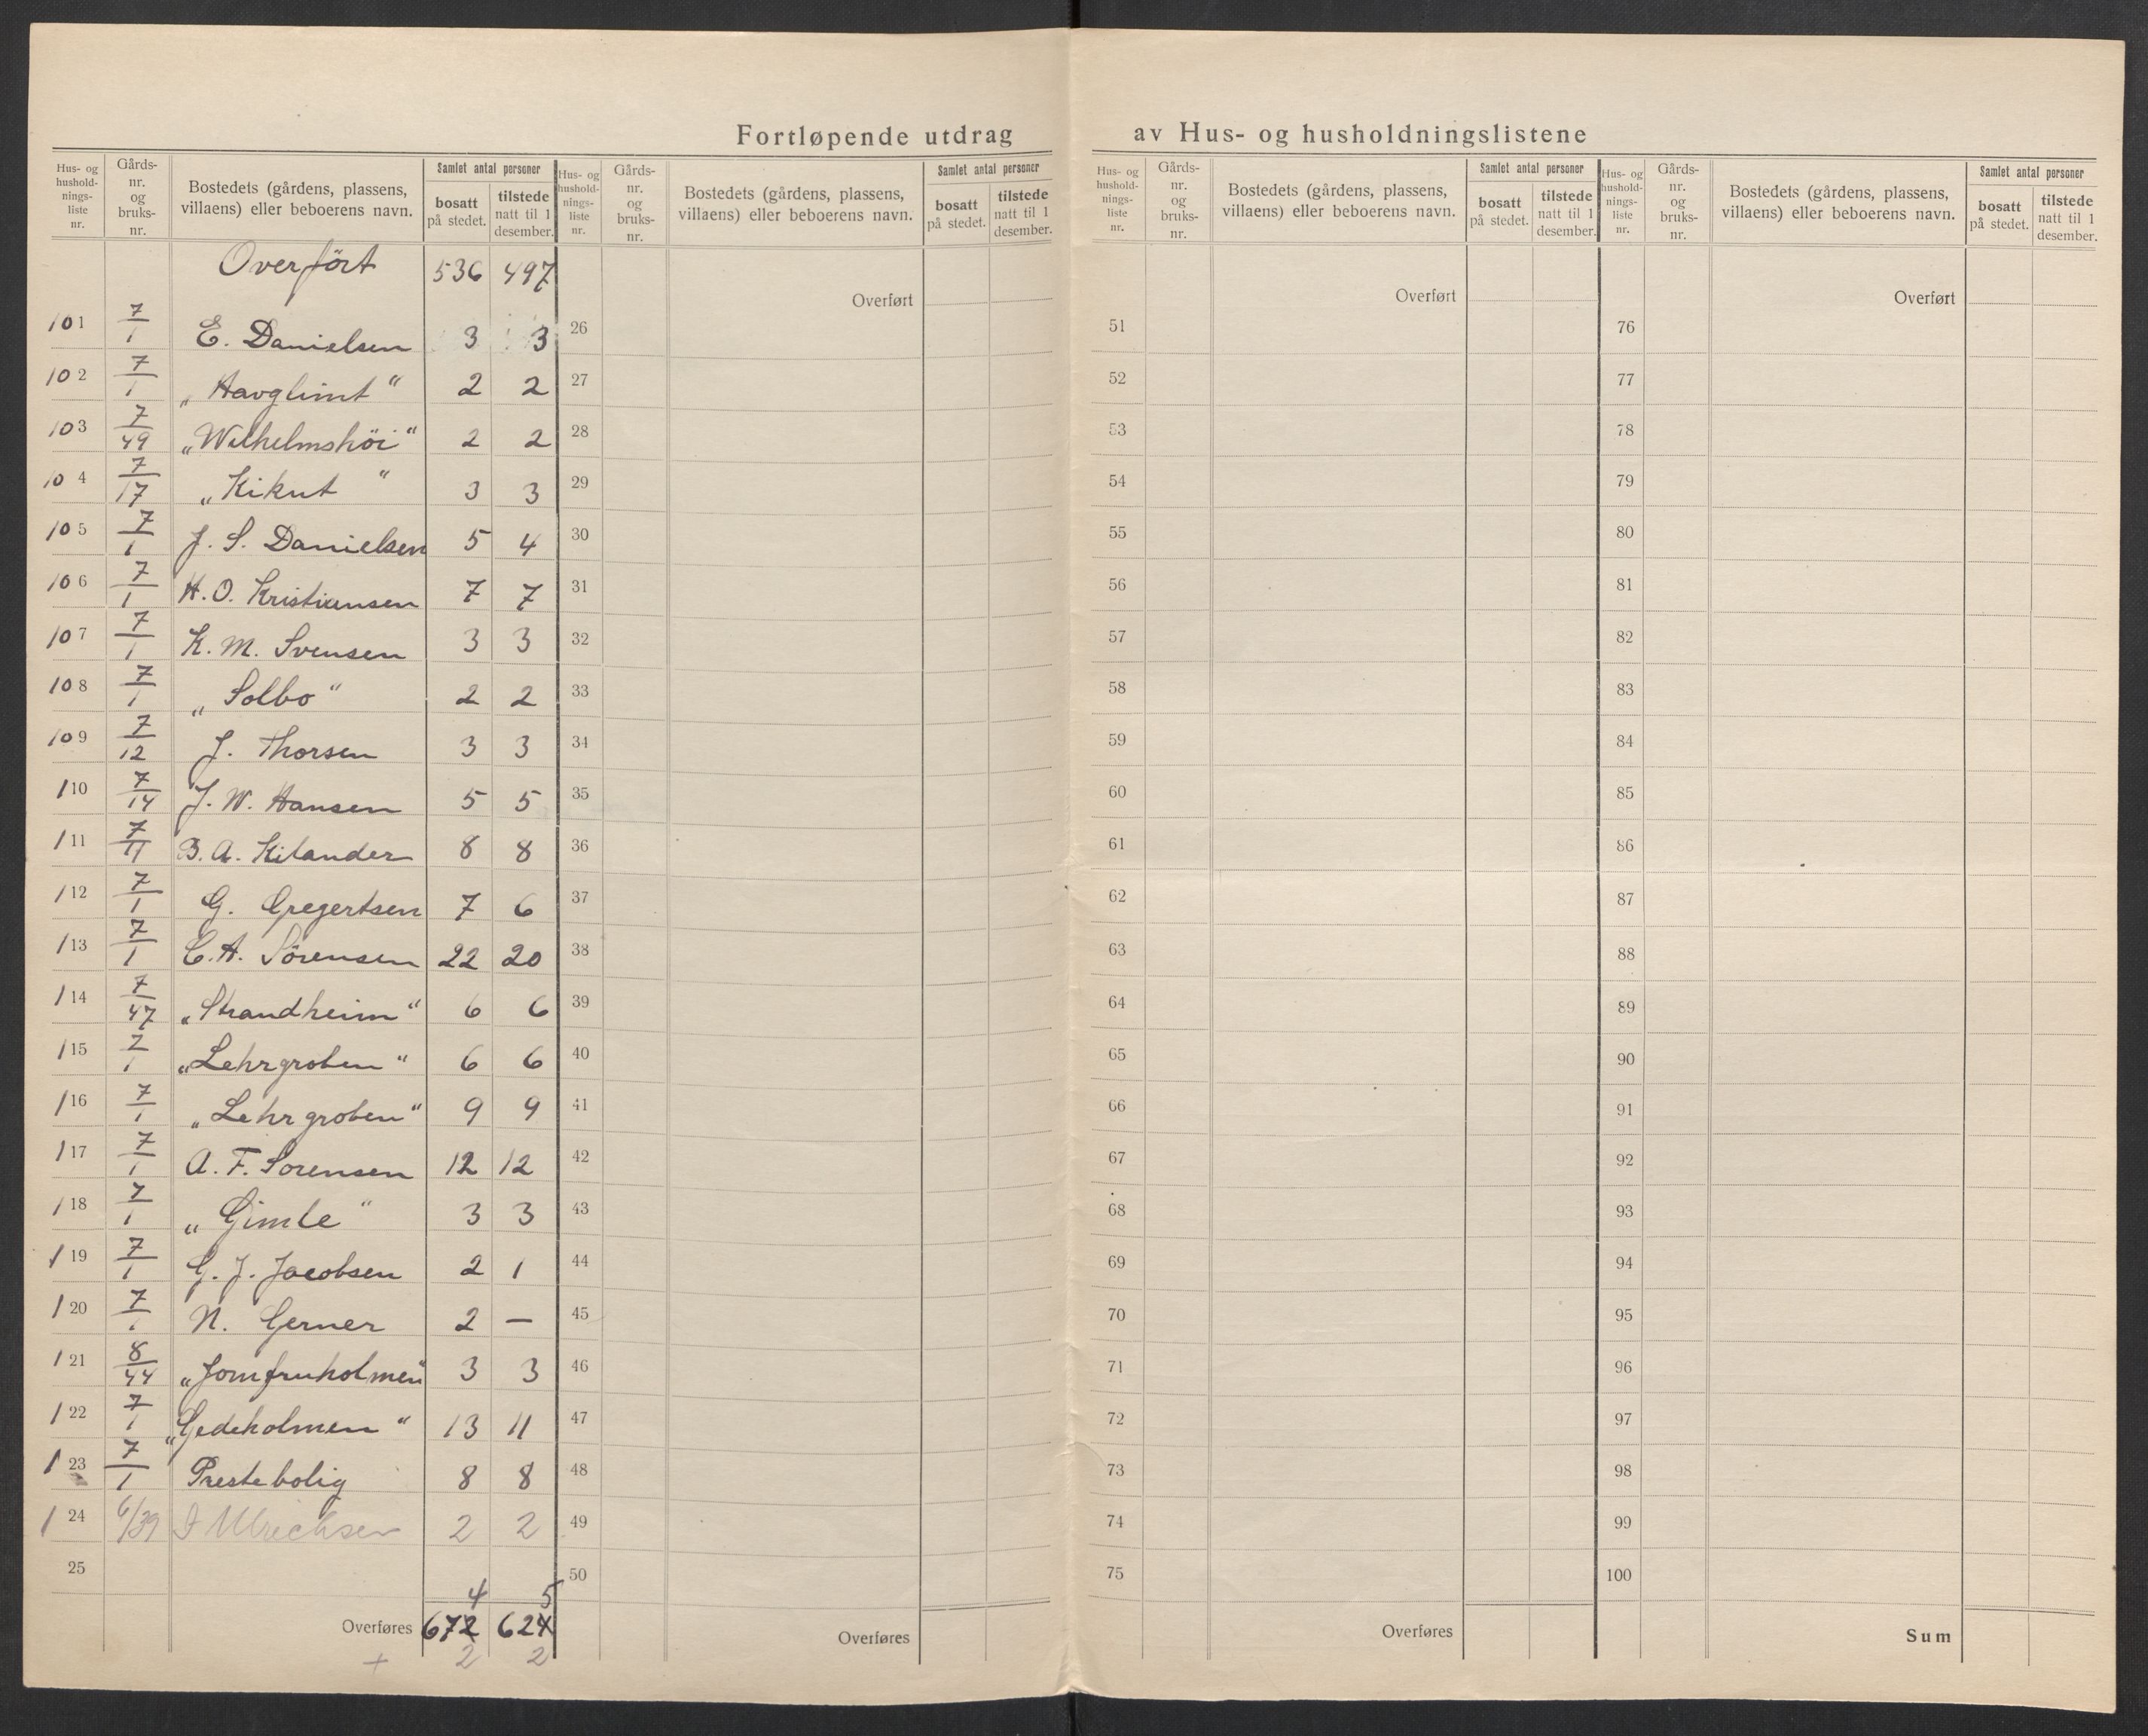 Fortløpende utdrag av Hus- og husholdningslistene
Hus- og hushold- nings- liste nr. | Gårds- nr. og bruks- nr. | Bostedets (gårdens, plassens, villaens) eller beboerens navn. | Samlet antal personer | bosatt på stedet. | tilstede natt til 1 desember.
Hus- og hushold- nings- liste nr. | Gårds- nr. og bruks- nr. | Bostedets (gårdens, plassens, villaens) eller beboerens navn. | Samlet antal personer | bosatt på stedet. | tilstede natt til 1 desember.
Hus- og hushold- nings- liste nr. | Gårds- nr. og bruks- nr. | Bostedets (gårdens, plassens, villaens) eller beboerens navn. | Samlet antal personer | bosatt på stedet. | tilstede natt til 1 desember.
Hus- og hushold- nings- liste nr. | Gårds- nr. og bruks- nr. | Bostedets (gårdens, plassens, villaens) eller beboerens navn. | Samlet antal personer | bosatt på stedet. | tilstede natt til 1 desember.
Overført 536 497 Overført Overført Overført
101 7/1 E. Danielsen 3 3 26 51 76
102 7/1 „Havglimt“ 2 2 27 52 77
103 7/49 „Wilhelmshöi“ 2 2 28 53 78
104 7/17 „Kikut“ 3 3 29 54 79
105 7/1 J. S. Danielsen 5 4 30 55 80
106 7/1 H. O. Kristiansen 7 7 31 56 81
107 7/1 K. M. Svensen 3 3 32 57 82
108 7/1 „Solbo“ 2 2 33 58 83
109 7/12 J. Thorsen 3 3 34 59 84
110 7/14 J. W. Hansen 5 5 35 60 85
111 7/11 B. A. Kilander 8 8 36 61 86
112 7/1 G. Gregertsen 7 6 37 62 87
113 7/1 C. A. Sörensen 22 20 38 63 88
114 7/47 „Strandheim“ 6 6 39 64 89
115 7/1 „Lehrgroben“ 6 6 40 65 90
116 7/1 „Lehrgroben“ 9 9 41 66 91
117 7/1 A. F. Sorensen 12 12 42 67 92
118 7/1 „Gimle“ 3 3 43 68 93
119 7/1 G. J. Jacobsen 2 1 44 69 94
120 7/1 N. Gerner 2 — 45 70 95
121 8/44 „Jomfruholmen“ 3 3 46 71 96
122 7/1 „Gedeholmen“ 13 11 47 72 97
123 7/1 Prestebolig 8 8 48 73 98
124 6/39 Ulrichsen 2 2 49 74 99
25 50 75 100
4 5
Overføres 672 624 Overføres Overføres Sum
+ 2 2